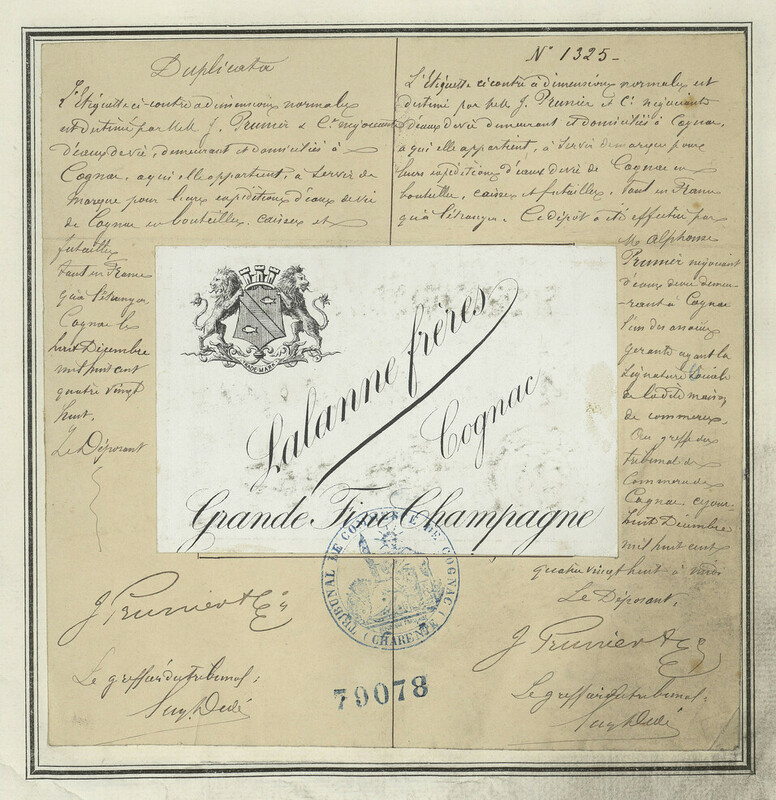 Duplicata
L'étiquette ci-contre à dimensions normales
est destiné par MM J. Prunier & Cie négociants
d'eaux de vie, demeurant et domiciliés à
Cognac, a qui elle appartient, à servir de
marque pour leurs expéditions d'eaux de vie
de Cognac en bouteilles, caisses et
futailles
tant en France
qu'à l'étranger
Cognac le
huit Décembre
mil huit cent
quatre vingt
huit.
Le Déposant
J Prunier & Cie
Le greffier du tribunal:
N° 1325-
L'étiquette ci contre à dimensions normales est
destiné par MM J. Prunier et Cie négociants
d'eaux de vie demeurant et domiciliés à Cognac,
a qui elle appartient, à servir de marque pour
leurs expéditions d'eaux de vie de Cognac en
bouteilles, caisses et futailles, tant en France
qu'à l'étranger. Ce dépôt a été effectué par
Mr Alphonse
Prunier négociant
d'eaux de vie demeu-
-rant à Cognac
l'un des associés
gérants ayant la
signature sociale
de la dite maison
de commerce.
Au greffe du
tribunal de
commerce de
Cognac ce jour
huit Décembre
mil huit cent
quatre vingt huit à midi
Le Déposant.
J Prunier & Cie
Le greffier du tribunal:
TRADE-MARK
Lalanne frères
Cognac
Grande Fine Champagne
TRIBUNAL DE COMMERCE DE COGNAC
(CHARENTE)
79078